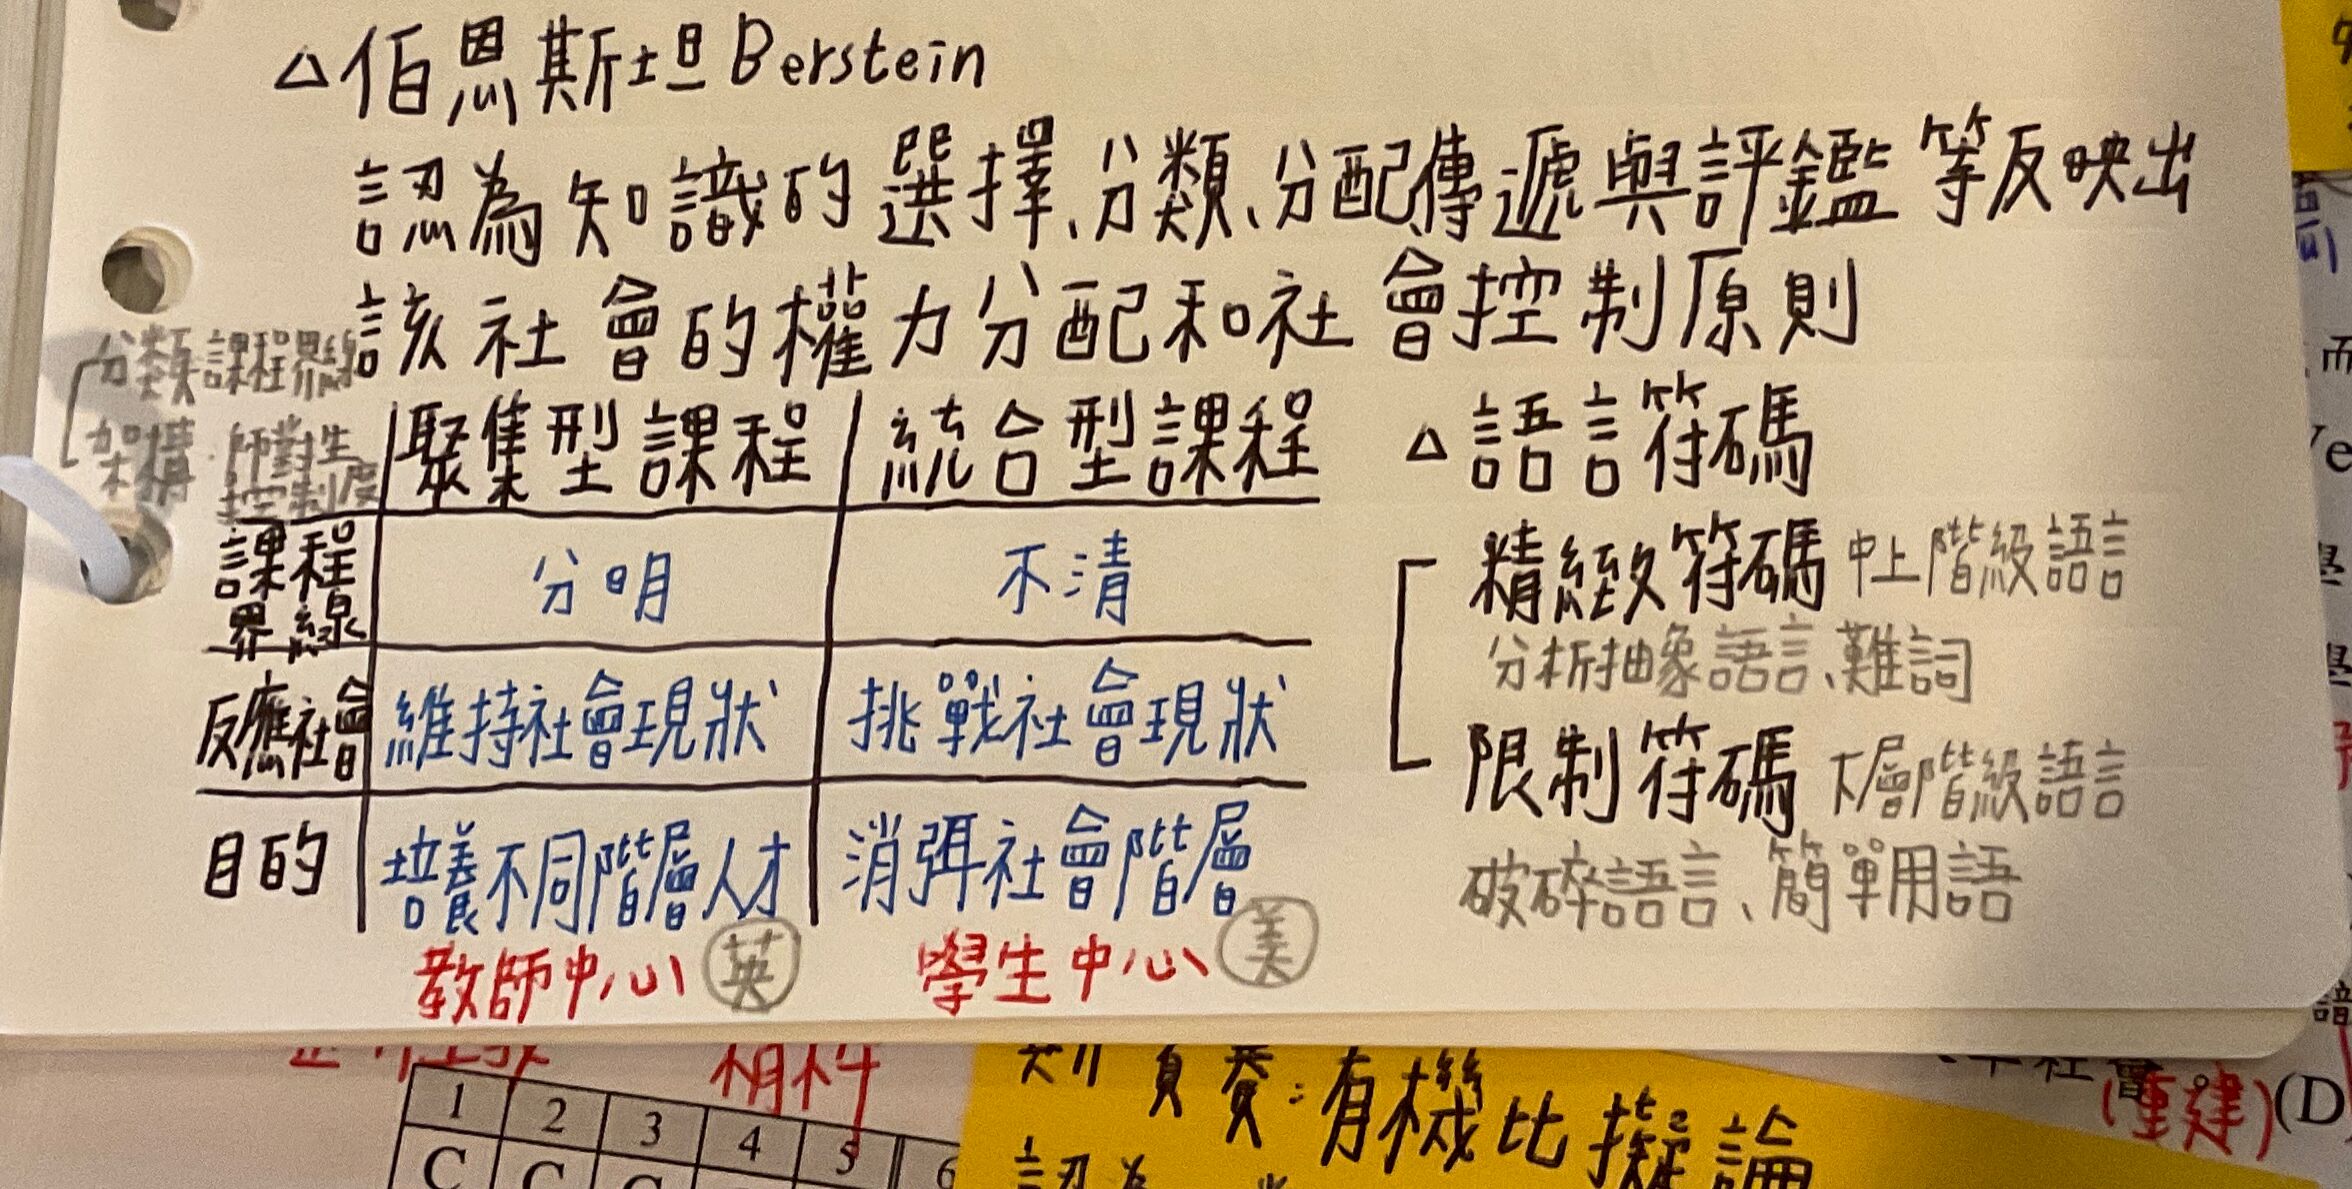 △伯恩斯坦Berstein
認為知識的選擇、分類、分配傳遞與評鑑等反映出
該社會的權力分配和社會控制原則
分類 課程界線
架構·師對生
控制度
聚集型課程 統合型課程
課程界線 分明 不清
反應社會 維持社會現狀 挑戰社會現狀
目的 培養不同階層人才 消弭社會階層
教師中心 英 學生中心 美
△語言符碼
精緻符碼 中上階級語言
分析抽象語言、難詞
限制符碼 下層階級語言
破碎語言、簡單用語
有機比擬論
(重建)(D
1 2 3 4 5 6
C C